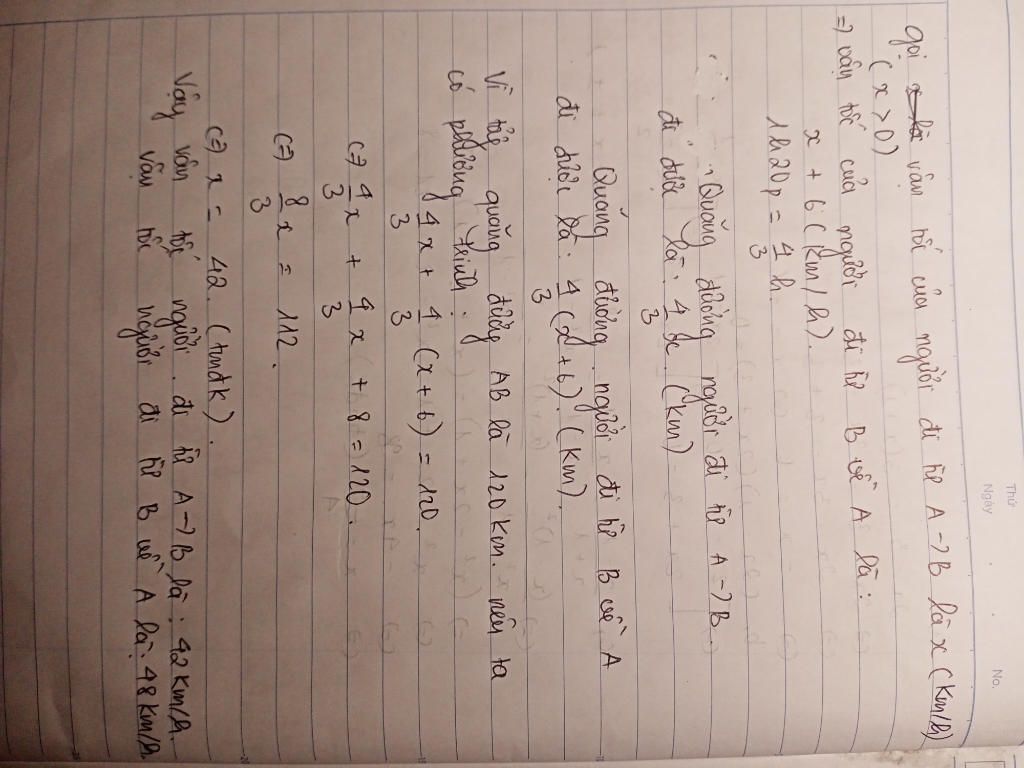 Thứ
Ngày
No.
Gọi vận tốc của người đi từ A -> B là x (km/h)
(x > 0)
=> vận tốc của người đi từ B về A là:
x + 6 (km/h).
1h20p = 4/3 h.
Quãng đường người đi từ A -> B
đi được là: 4/3 x. (km)
Quãng đường người đi từ B về A
đi được là: 4/3 (x+6). (km).
Vì quãng đường AB là 120 km. nên ta
có phương trình:
4/3 x + 4/3 (x+6) = 120.
(=) 4/3 x + 4/3 x + 8 = 120.
(=) 8/3 x = 112.
(=) x = 42. (tmđk).
Vậy vân tốc người đi từ A -> B là: 42km/h.
vận tốc người đi từ B về A là: 48km/h